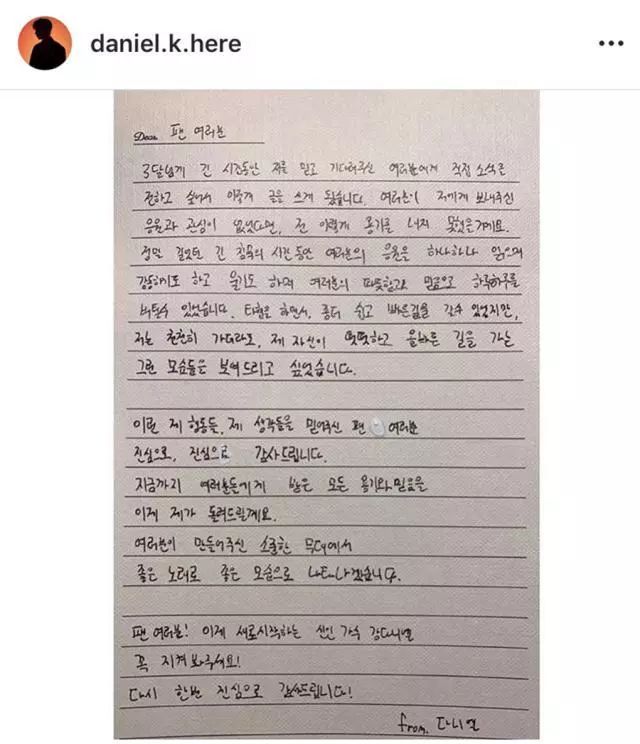 daniel.k.here
Dear. 팬 여러분
3달넘게 긴 시간동안 저를 믿고 기다려주신 여러분에게 직접 소식을
전하고 싶어서 이렇게 글을 쓰게 됐습니다. 여러분이 저에게 보내주신
응원과 관심이 없었다면, 전 이렇게 용기를 내지 못했을거에요.
정말 길었던 긴 침묵의 시간동안 여러분의 응원을 하나하나 읽으며
감동하기도 하고 울기도 하며 여러분의 따뜻함과 믿음으로 하루하루를
버틸수 있었습니다. 타협을 하면서, 좀더 쉽고 빠른길을 갈수 있었지만,
저는 천천히 가더라도, 제 자신이 떳떳하고 올바른 길을 가는
그런 모습들을 보여드리고 싶었습니다.
이런 제 행동들, 제 생각들을 믿어주신 팬 여러분
진심으로, 진심으로 감사드립니다.
지금까지 여러분들에게 받은 모든 용기와 믿음을
이제 제가 돌려드릴게요.
여러분이 만들어주신 소중한 무대에서
좋은 노래로 좋은 모습으로 나타나겠습니다.
팬 여러분! 이제 새로시작하는 신인 가수 강다니엘
꼭 지켜봐주세요!
다시 한번 진심으로 감사드립니다!
from. 다니엘